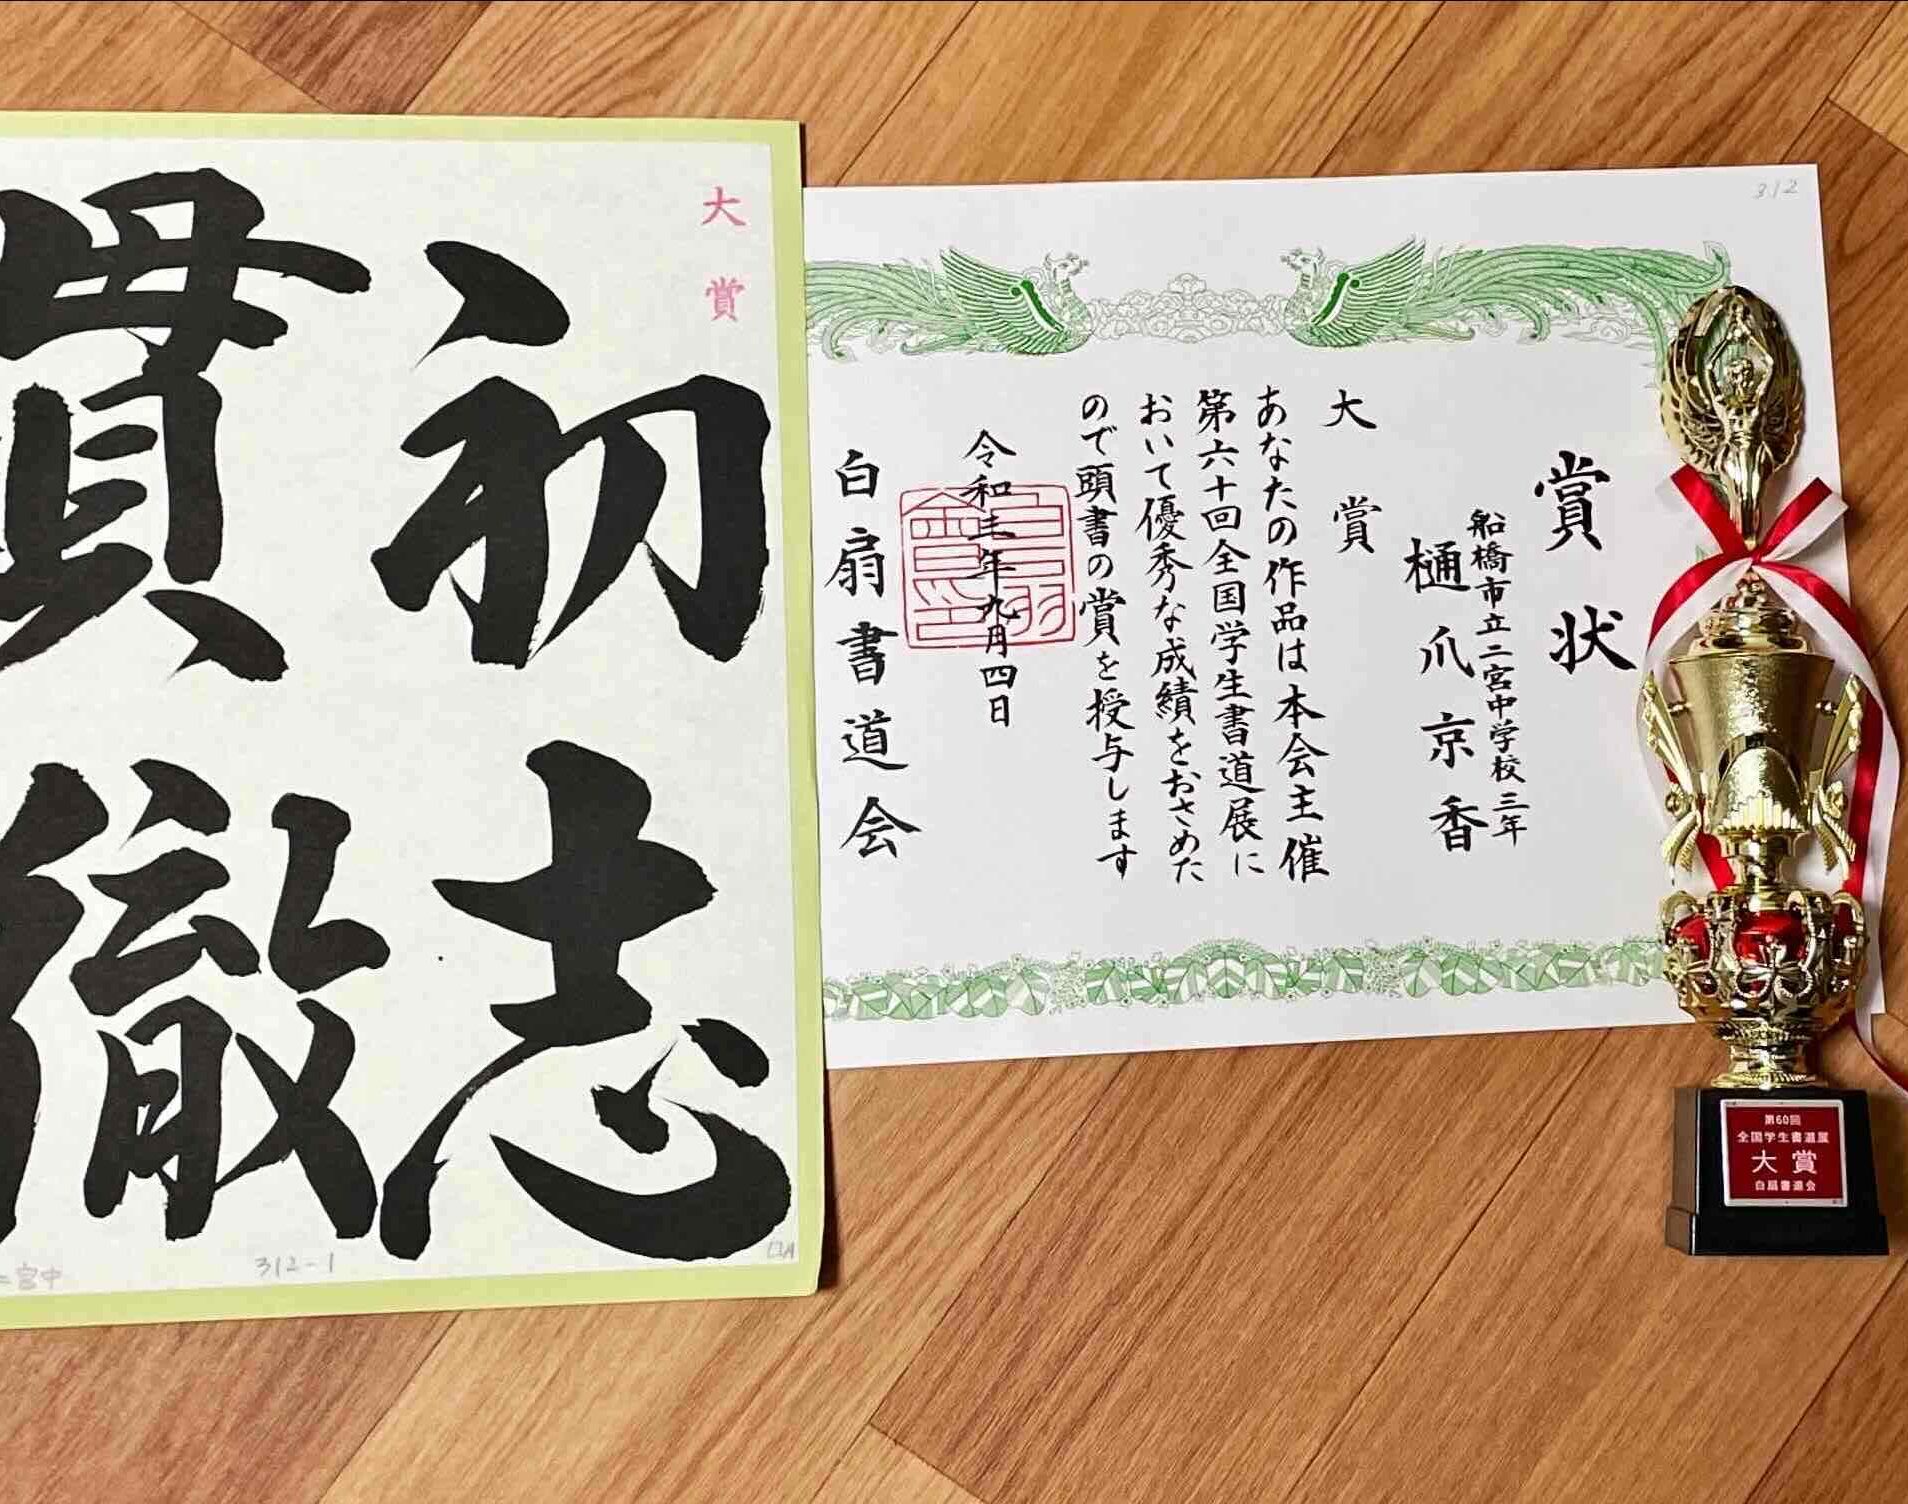 初志
貫徹
大賞
312-1
二宮中
312
賞状
船橋市立二宮中学校三年
樋爪京香
大賞
あなたの作品は本会主催
第六十回全国学生書道展に
おいて優秀な成績をおさめた
ので頭書の賞を授与します
令和三年九月四日
白扇書道会
第60回
全国学生書道展
大賞
白扇書道会